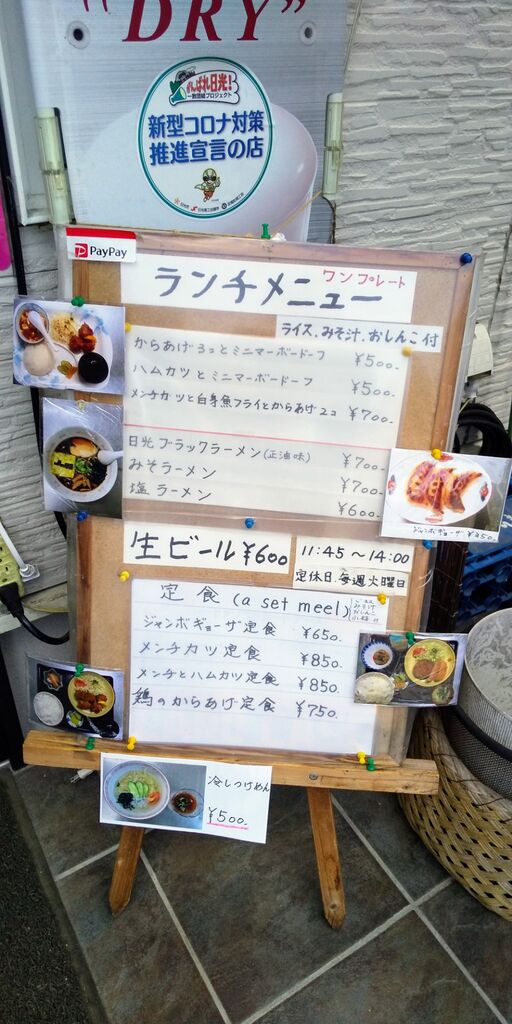 "DRY"
がんばれ日光!
一致団結プロジェクト
新型コロナ対策
推進宣言の店
PayPay
ランチメニュー ワンプレート
ライス.みそ汁.おしんこ付
からあげ3コとミニマーボードーフ ¥500.
ハムカツとミニマーボードーフ ¥500.
メンチカツと白身魚フライとからあげ2コ ¥700.
日光ブラックラーメン(正油味) ¥700.
みそラーメン ¥700.
塩ラーメン ¥600.
ジャンボギョーザ ¥350.
生ビール¥600
11:45~14:00
定休日.毎週火曜日
定食(a set meel)
みそ汁
おしんこ
小鉢付
ジャンボギョーザ定食 ¥650.
メンチカツ定食 ¥850.
メンチとハムカツ定食 ¥850.
鶏のからあげ定食 ¥750.
冷しつけめん
¥500.